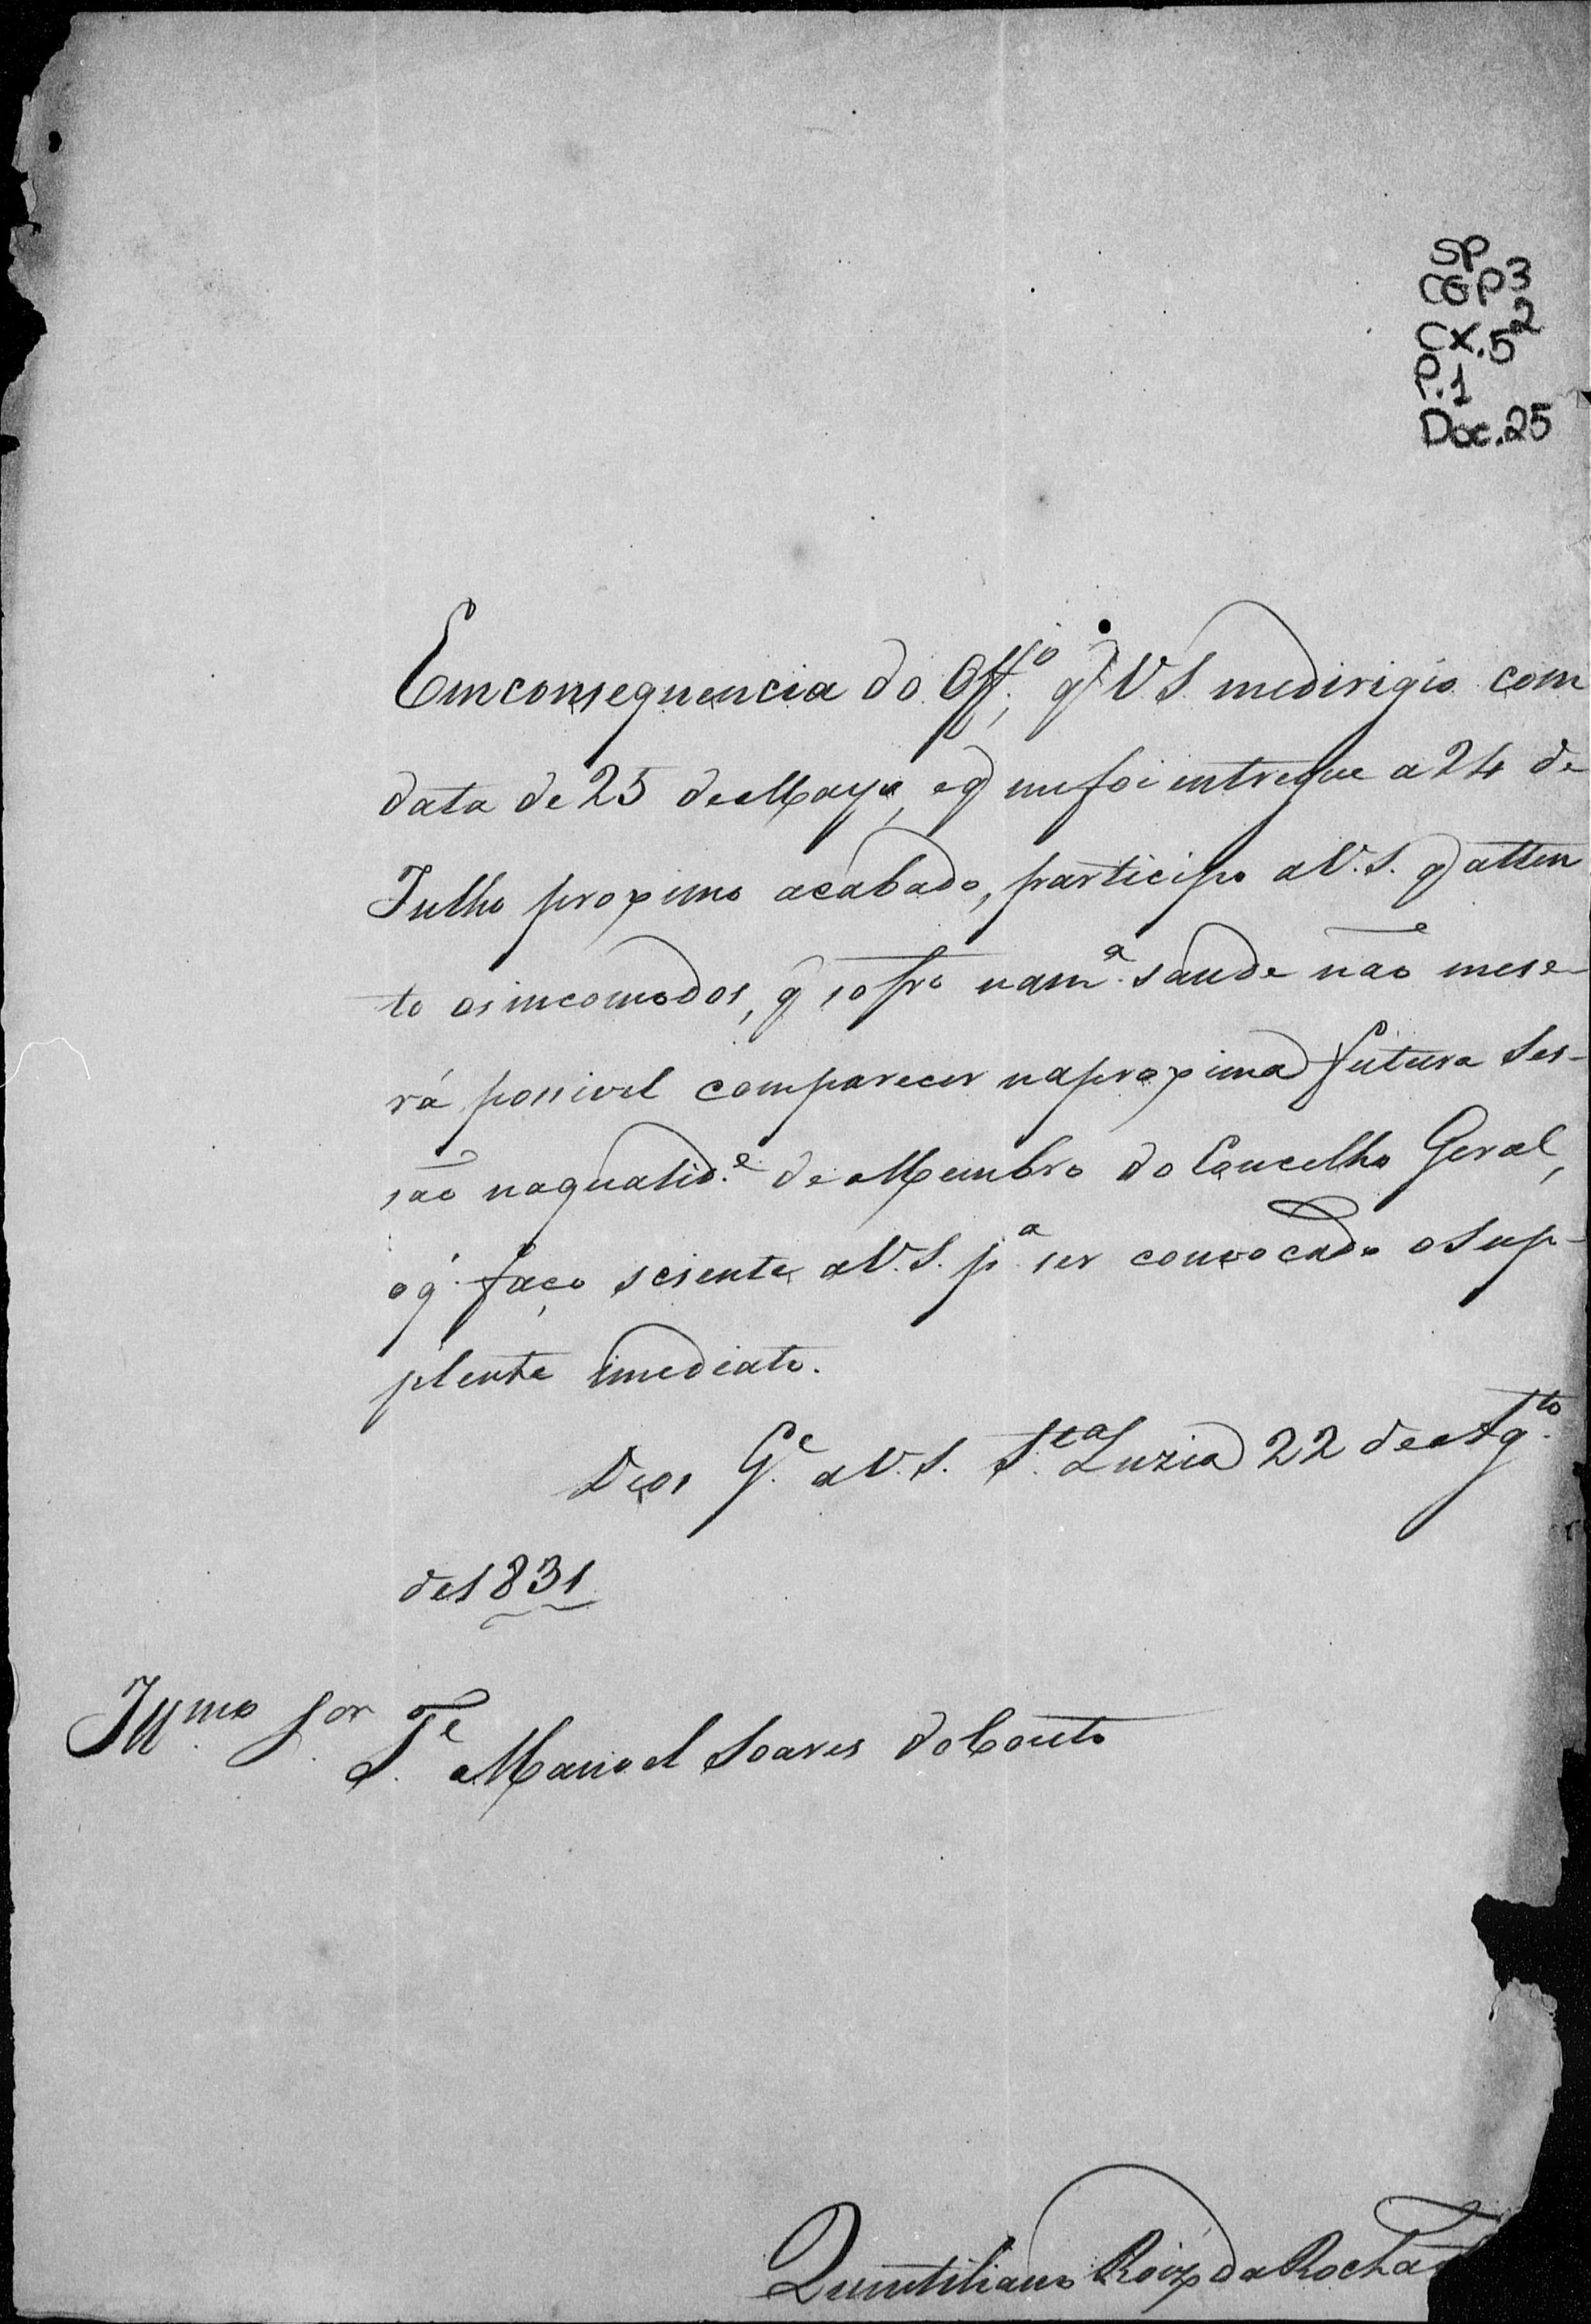 SP
CGP3
CX.52
P.1
Doc.25
Emconsequencia do Off.º, q̃ V S. medirigio com
data de 25 de Mayo, eq̃ mefoi entregue a 24 de
Julho proximo acabado, participo aV.S. q̃ atten
to osincomodos, q̃ sofro nam.ª saude não mese-
rá possivel comparecer naproxima futura Ses-
são naqualid.e de Membro do Concelho Geral,
oq̃ faço sciente aV.S. p.ª ser convocado oSup-
plente imediato.
Deos G.e aV.S. S.ta Luzia 22 de Ag.to
de1831
Ill.mo S.or T.e Manoel Soares doCouto
Quintiliano Roiz da Rocha